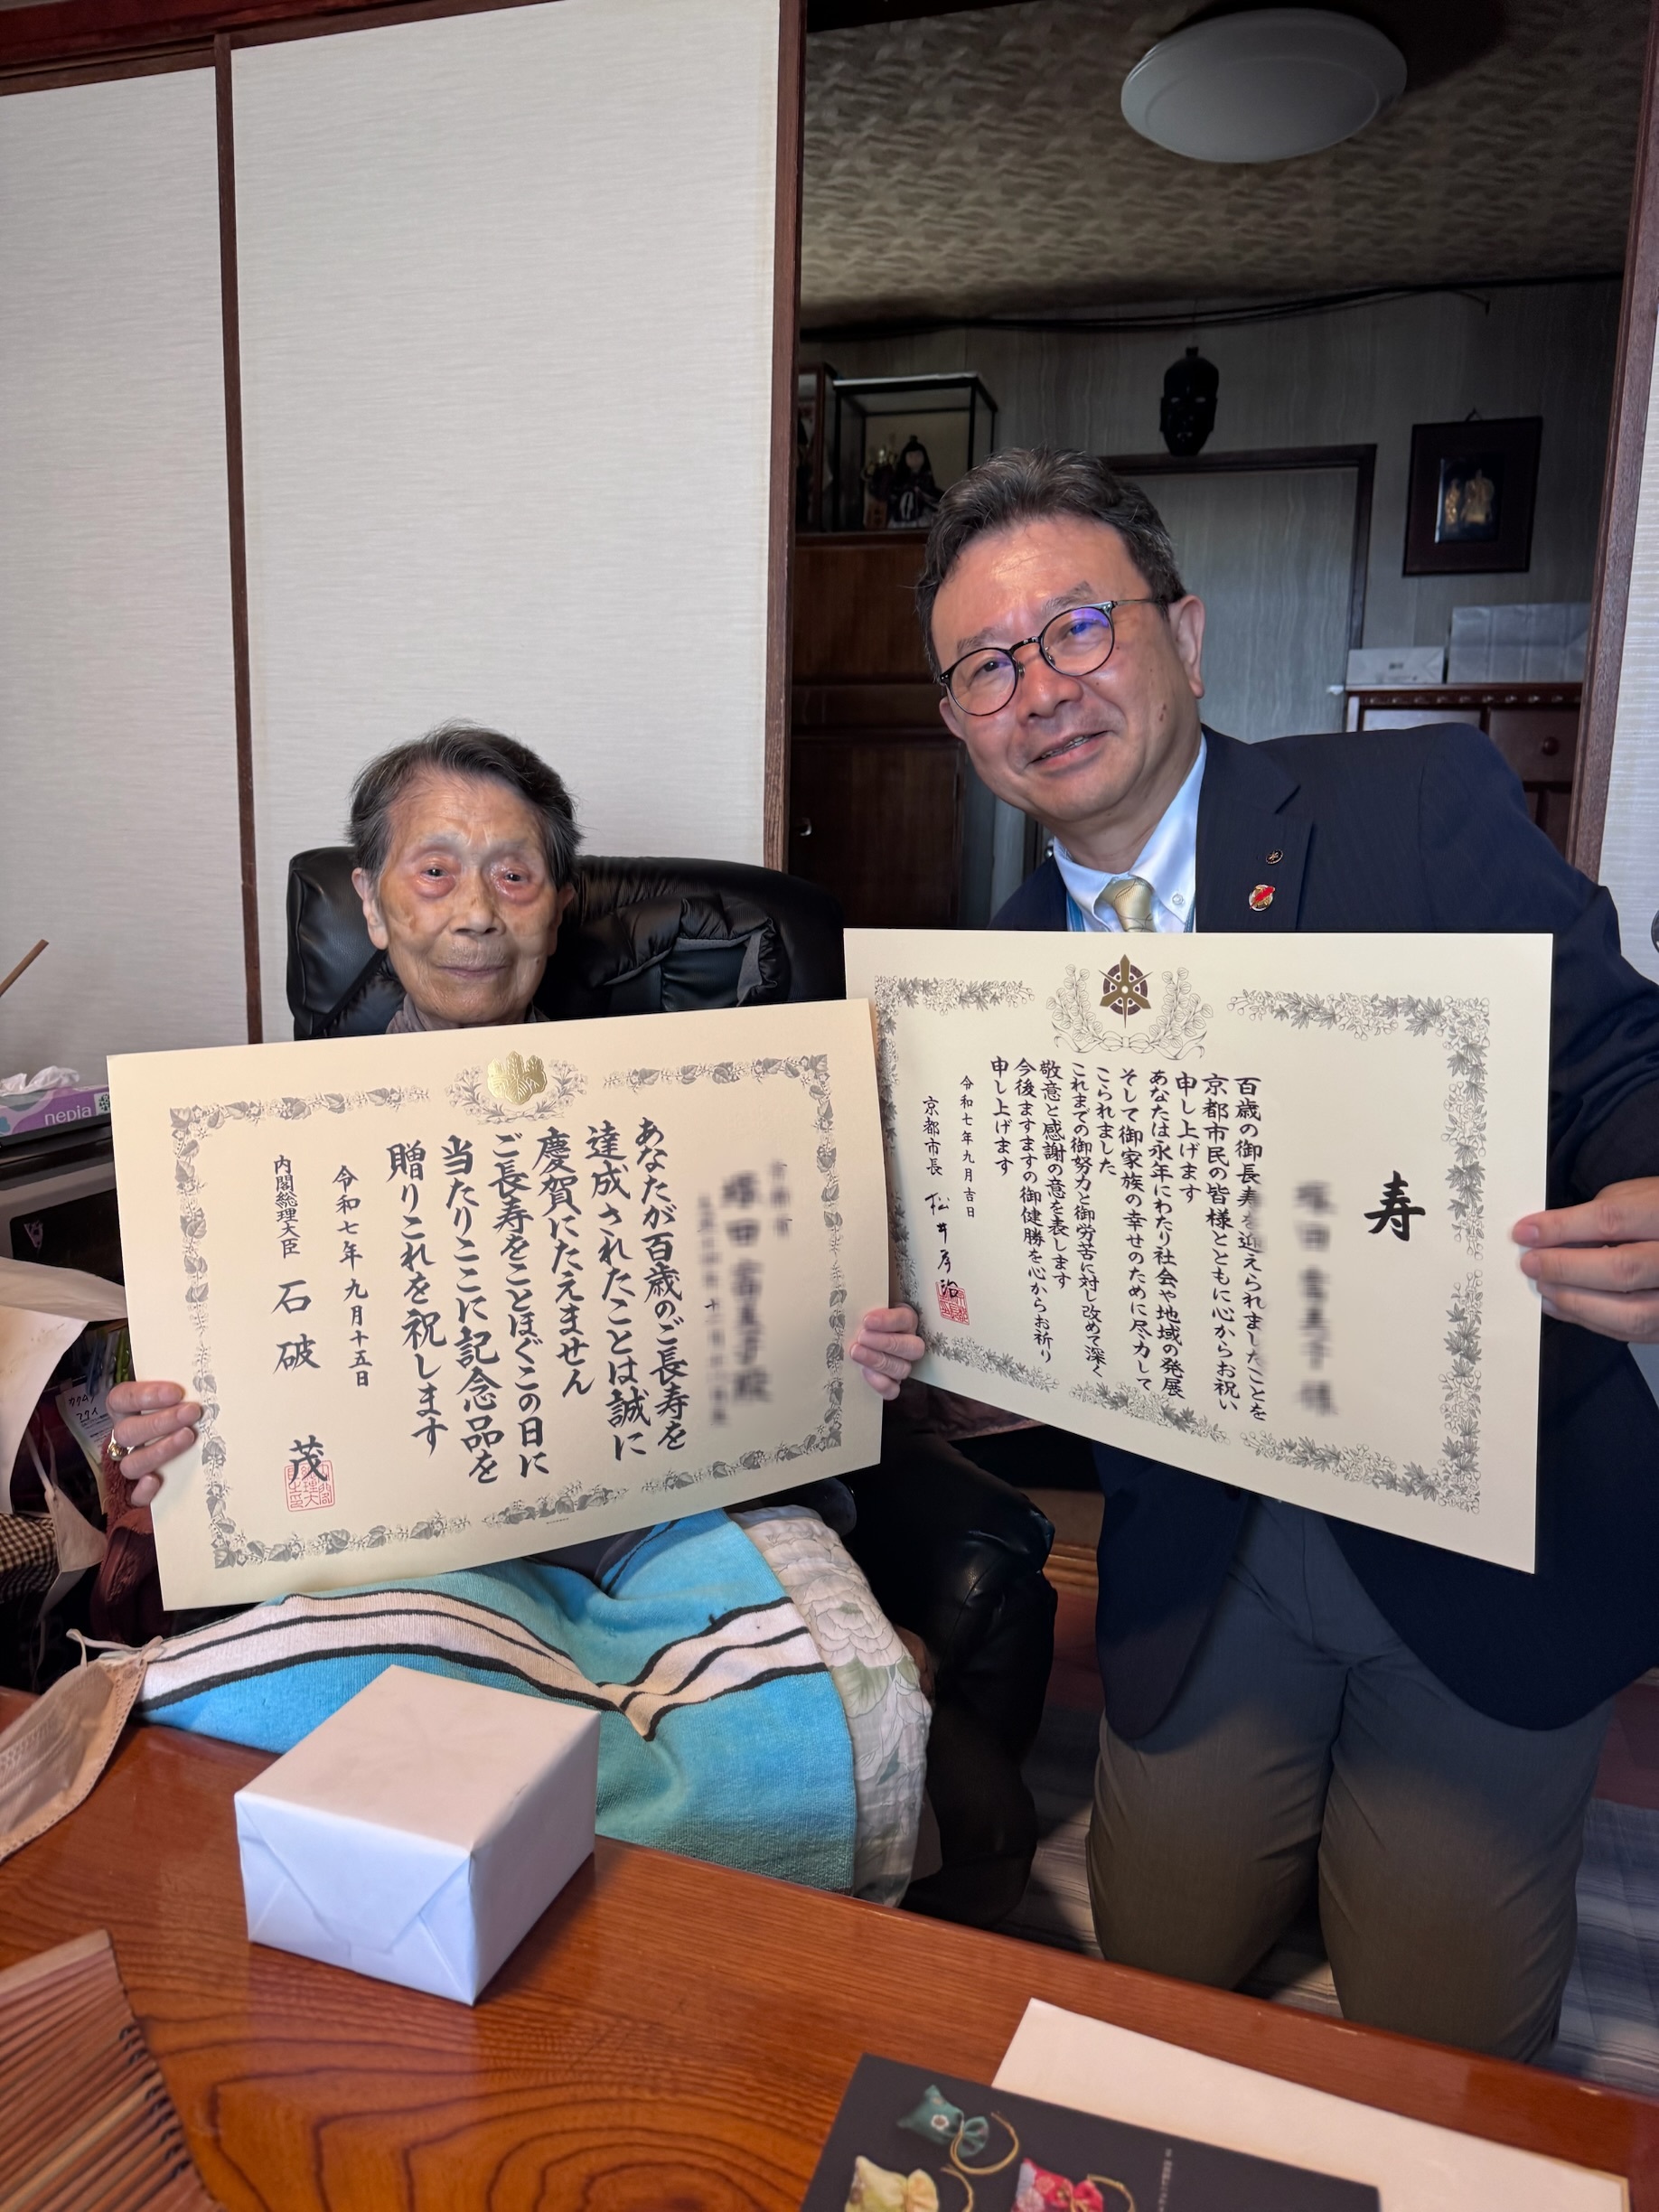 寿
百歳の御長寿を迎えられましたことを
京都市民の皆様とともに心からお祝い
申し上げます
あなたは永年にわたり社会や地域の発展
そして御家族の幸せのために尽力して
こられました
これまでの御努力と御労苦に対し改めて深く
敬意と感謝の意を表します
今後ますますの御健勝を心からお祈り
申し上げます
令和七年九月吉日
京都市長 松井孝治
あなたが百歳のご長寿を
達成されたことは誠に
慶賀にたえません
ご長寿をことほぐこの日に
当たりここに記念品を
贈りこれを祝します
令和七年九月十五日
内閣総理大臣 石破 茂
nepia